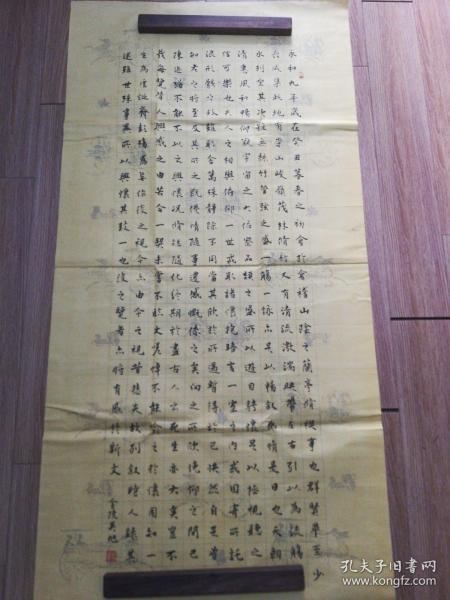 永和九年歲在癸丑暮春之初會於會稽山陰之蘭亭脩禊事也群賢畢至少
長咸集此地有崇山峻嶺茂林脩竹又有清流激湍映帶左右引以為流觴
曲水列坐其次雖無絲竹管弦之盛一觴一詠亦足以暢敘幽情是日也天朗
氣清惠風和暢仰觀宇宙之大俯察品類之盛所以遊目騁懷足以極視聽之
娛信可樂也夫人之相與俯仰一世或取諸懷抱晤言一室之內或因寄所託
放浪形骸之外雖趣舍萬殊靜躁不同當其欣於所遇暫得於己快然自足曾
不知老之將至及其所之既倦情隨事遷感慨係之矣向之所欣俛仰之間已
為陳迹猶不能不以之興懷況脩短隨化終期於盡古人云死生亦大矣豈不
痛哉每覽昔人興感之由若合一契未嘗不臨文嗟悼不能喻之於懷固知一
死生為虛誕齊彭殤為妄作後之視今亦由今之視昔悲夫故列敘時人錄其
所述雖世殊事異所以興懷其致一也後之覽者亦將有感於斯文
金陵吳旭
孔夫子旧书网